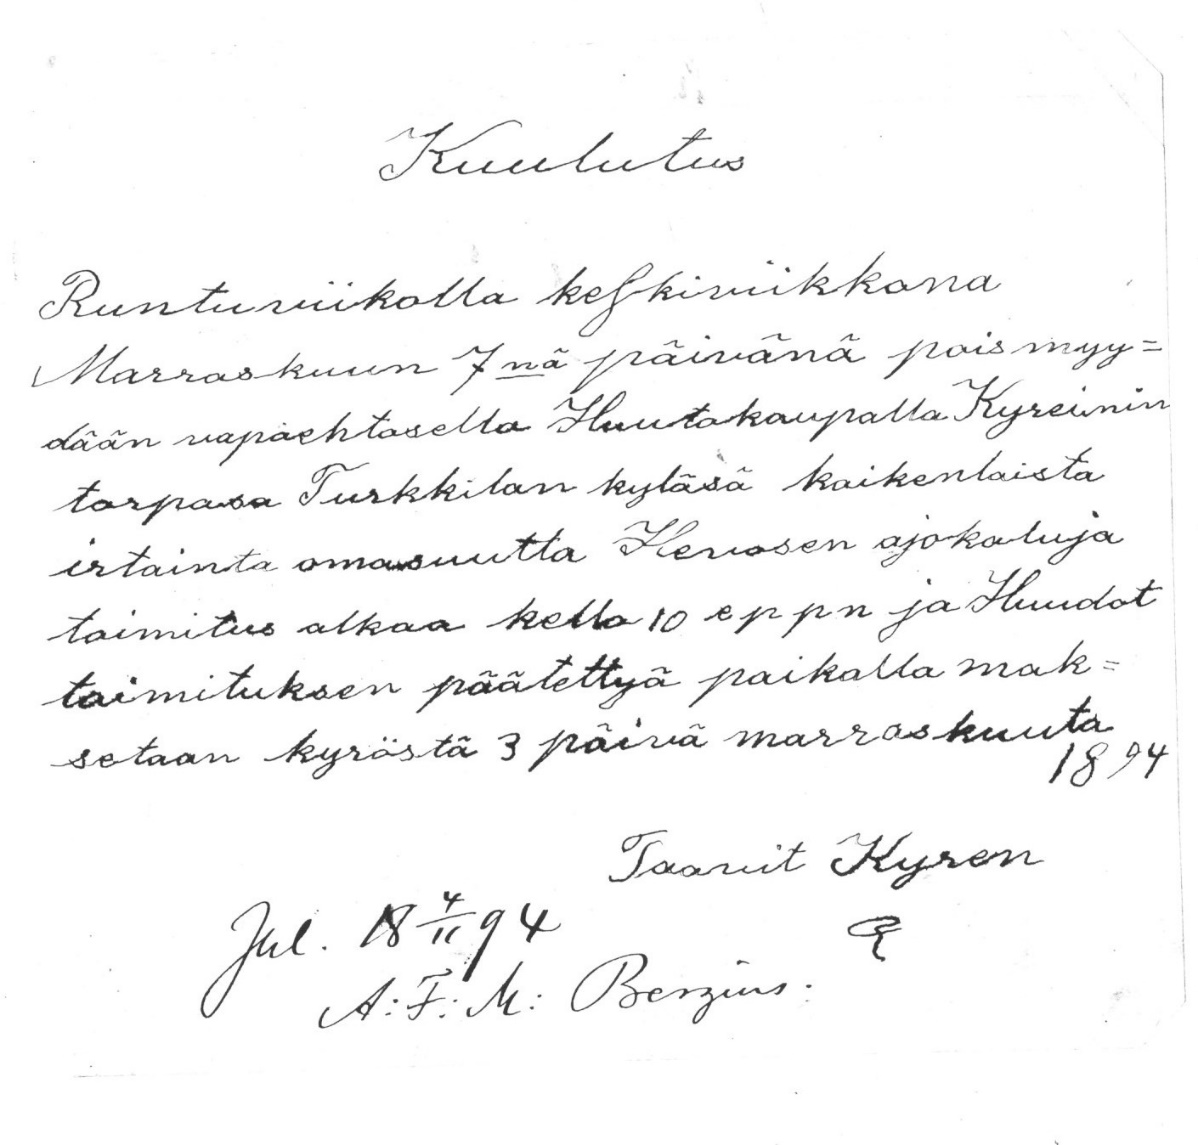 Kuulutus
Runtuviikolla keskiviikkona
Marraskuun 7nä päivänä pois myy=
dään vapaehtosella Huutokaupalla Kyreinin
torpasa Turkkilan kyläsä kaikenlaista
irtainta omasuutta Hevosen ajokaluja
toimitus alkaa kello 10 e p p n ja Huudot
toimituksen päätettyä paikalla mak=
setaan kyröstä 3 päivä marraskuuta
1894
Taavit Kyren
Jul. 18 4/11 94
A: F: M: Berzius.